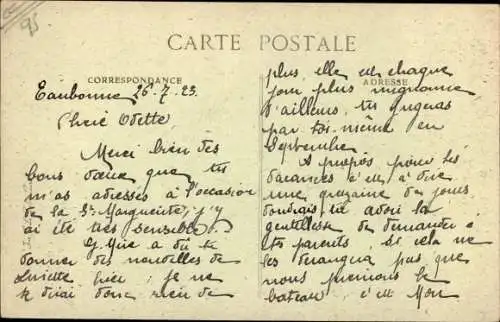 95
CARTE POSTALE
CORRESPONDANCE
ADRESSE
Eaubonne 26-7-23
Chère Odette,
Merci bien des
bons vœux que tu
m'as adressés à l'occasion
de la Ste Marguerite, j'y
ai été très sensible.
G. Gue a dû te
donner des nouvelles de
Ginette hier, je ne
te dirai donc rien de
plus, elle est chaque
jour plus mignonne
d'ailleurs, tu jugeras
par toi-même en
Septembre
A propos pour les
vacances c'est à dire
une quinzaine de jours
voudrais tu avoir la
gentillesse de demander à
tes parents. Si cela ne
les dérangera pas que
nous prenions le
bateau c'est Mon